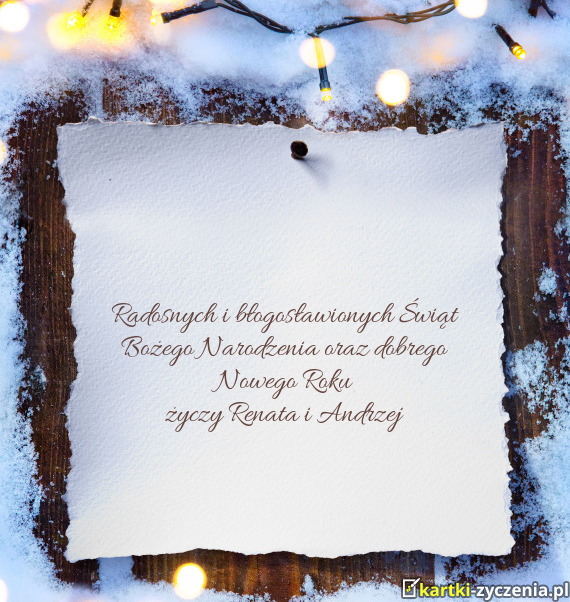 Radosnych i błogosławionych Świąt
Bożego Narodzenia oraz dobrego
Nowego Roku
życzy Renata i Andrzej
kartki-zyczenia.pl